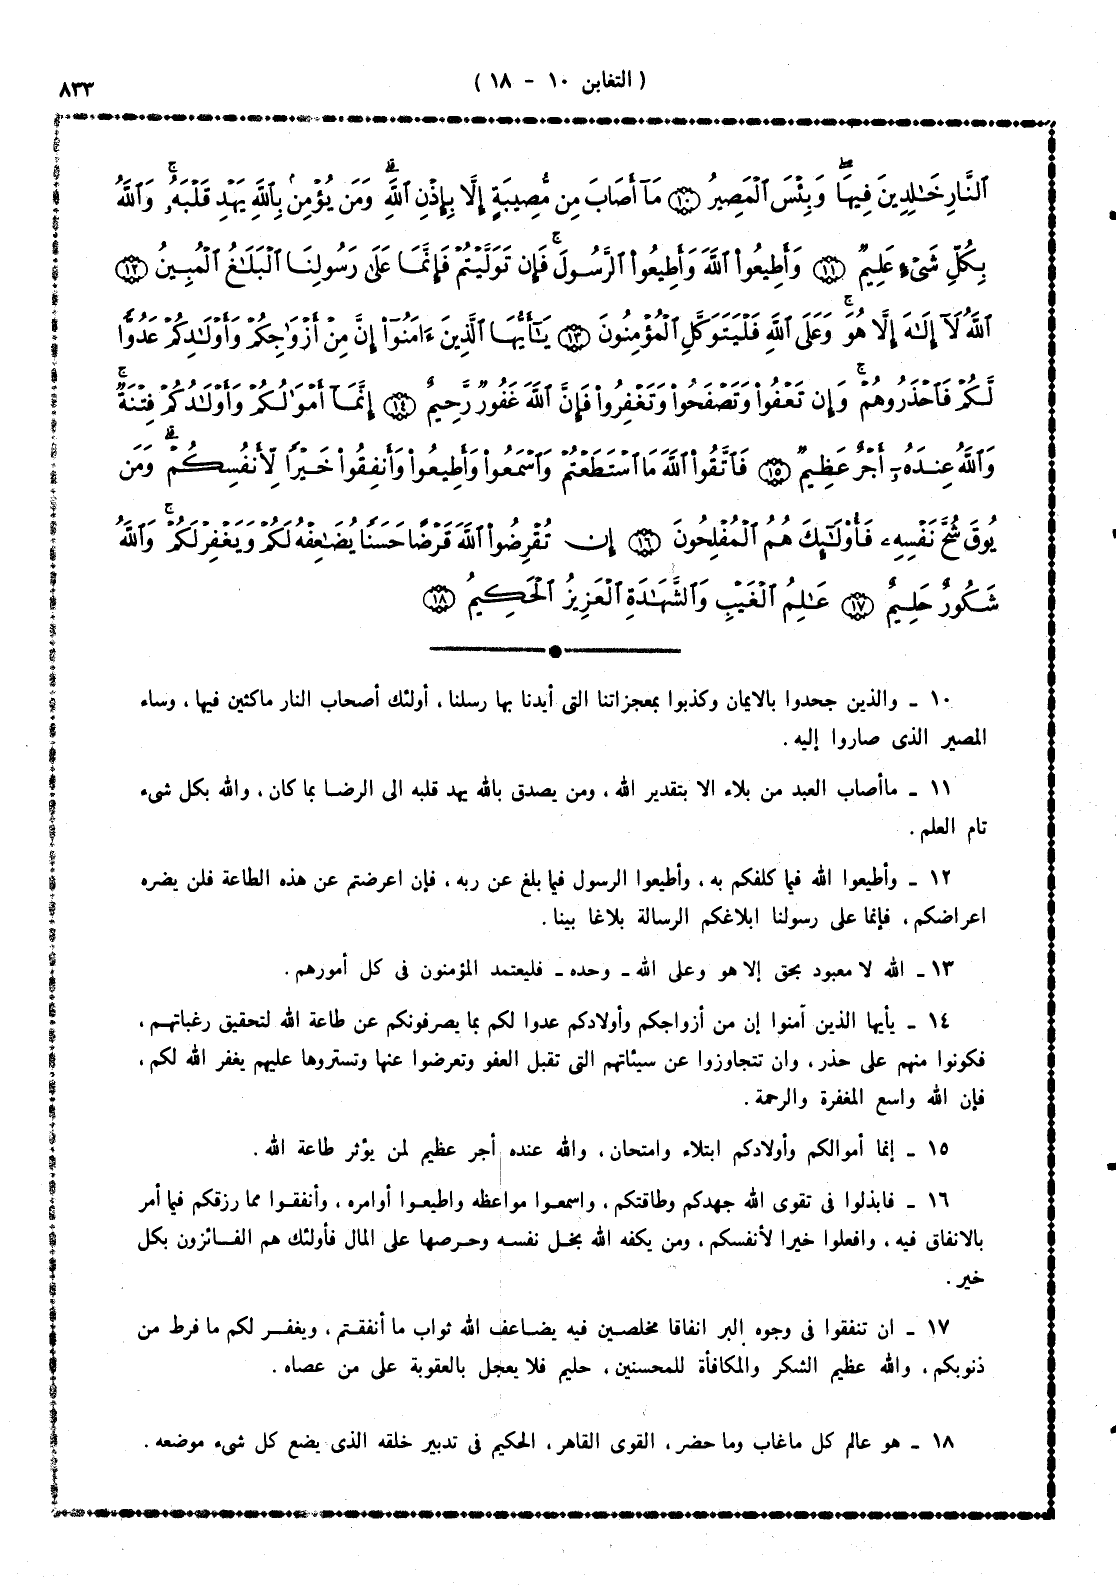 ( التغابن ١٠ - ١٨ )
٨٣٣
ٱلنَّارِ خَٰلِدِينَ فِيهَا ۖ وَبِئْسَ ٱلْمَصِيرُ ١٠ مَآ أَصَابَ مِن مُّصِيبَةٍ إِلَّا بِإِذْنِ ٱللَّهِ ۗ وَمَن يُؤْمِنۢ بِٱللَّهِ يَهْدِ قَلْبَهُۥ ۚ وَٱللَّهُ
بِكُلِّ شَىْءٍ عَلِيمٌ ١١ وَأَطِيعُوا۟ ٱللَّهَ وَأَطِيعُوا۟ ٱلرَّسُولَ ۚ فَإِن تَوَلَّيْتُمْ فَإِنَّمَا عَلَىٰ رَسُولِنَا ٱلْبَلَٰغُ ٱلْمُبِينُ ١٢
ٱللَّهُ لَآ إِلَٰهَ إِلَّا هُوَ ۚ وَعَلَى ٱللَّهِ فَلْيَتَوَكَّلِ ٱلْمُؤْمِنُونَ ١٣ يَٰٓأَيُّهَا ٱلَّذِينَ ءَامَنُوٓا۟ إِنَّ مِنْ أَزْوَٰجِكُمْ وَأَوْلَٰدِكُمْ عَدُوًّا
لَّكُمْ فَٱحْذَرُوهُمْ ۚ وَإِن تَعْفُوا۟ وَتَصْفَحُوا۟ وَتَغْفِرُوا۟ فَإِنَّ ٱللَّهَ غَفُورٌ رَّحِيمٌ ١٤ إِنَّمَآ أَمْوَٰلُكُمْ وَأَوْلَٰدُكُمْ فِتْنَةٌ ۚ
وَٱللَّهُ عِندَهُۥٓ أَجْرٌ عَظِيمٌ ١٥ فَٱتَّقُوا۟ ٱللَّهَ مَا ٱسْتَطَعْتُمْ وَٱسْمَعُوا۟ وَأَطِيعُوا۟ وَأَنفِقُوا۟ خَيْرًا لِّأَنفُسِكُمْ ۗ وَمَن
يُوقَ شُحَّ نَفْسِهِۦ فَأُو۟لَٰٓئِكَ هُمُ ٱلْمُفْلِحُونَ ١٦ إِن تُقْرِضُوا۟ ٱللَّهَ قَرْضًا حَسَنًا يُضَٰعِفْهُ لَكُمْ وَيَغْفِرْ لَكُمْ ۚ وَٱللَّهُ
شَكُورٌ حَلِيمٌ ١٧ عَٰلِمُ ٱلْغَيْبِ وَٱلشَّهَٰدَةِ ٱلْعَزِيزُ ٱلْحَكِيمُ ١٨
١٠ ـ والذين جحدوا بالايمان وكذبوا بمعجزاتنا التى أيدنا بها رسلنا، أولئك أصحاب النار ماكثين فيها، وساء
المصير الذى صاروا إليه.
١١ ـ ماأصاب العبد من بلاء الا بتقدير الله، ومن يصدق بالله يهد قلبه الى الرضا بما كان، والله بكل شىء
تام العلم.
١٢ ـ وأطيعوا الله فيما كلفكم به، وأطيعوا الرسول فيما بلغ عن ربه، فإن اعرضتم عن هذه الطاعة فلن يضره
اعراضكم، فإنما على رسولنا ابلاغكم الرسالة بلاغا بينا.
١٣ ـ الله لا معبود بحق إلا هو وعلى الله ـ وحده ـ فليعتمد المؤمنون فى كل أمورهم.
١٤ ـ يأيها الذين آمنوا إن من أزواجكم وأولادكم عدوا لكم بما يصرفونكم عن طاعة الله لتحقيق رغباتهم،
فكونوا منهم على حذر، وان تتجاوزوا عن سيئاتهم التى تقبل العفو وتعرضوا عنها وتستروها عليهم يغفر الله لكم،
فإن الله واسع المغفرة والرحمة.
١٥ ـ إنما أموالكم وأولادكم ابتلاء وامتحان، والله عنده أجر عظيم لمن يؤثر طاعة الله.
١٦ ـ فابذلوا فى تقوى الله جهدكم وطاقتكم، واسمعوا مواعظه واطيعوا أوامره، وأنفقوا مما رزقكم فيما أمر
بالانفاق فيه، وافعلوا خيرا لأنفسكم، ومن يكفه الله بخل نفسه وحرصها على المال فأولئك هم الفائزون بكل
خير.
١٧ ـ ان تنفقوا فى وجوه البر انفاقا مخلصين فيه يضاعف الله ثواب ما أنفقتم، ويغفر لكم ما فرط من
ذنوبكم، والله عظيم الشكر والمكافأة للمحسنين، حليم فلا يعجل بالعقوبة على من عصاه.
١٨ ـ هو عالم كل ماغاب وما حضر، القوى القاهر، الحكيم فى تدبير خلقه الذى يضع كل شىء موضعه.